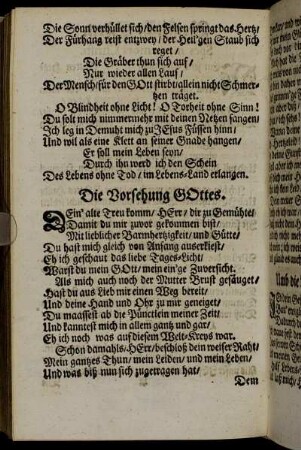 Die Sonn verhüllet sich/ den Felsen springt das Hertz/
Der Fürhang reist entzwey/ der Heil'gen Staub sich
reget/
Die Gräber thun sich auf/
Nur wieder allen Lauf/
Der Mensch/ für den GOtt stirbt/ allein nicht Schmer-
tzen träget.
O Blindheit ohne Licht! O Torheit ohne Sinn!
Du solt mich nimmermehr mit deinen Netzen fangen/
Jch leg in Demuht mich zu JEsus Füssen hinn/
Und wil als eine Klett an seiner Gnade hangen/
Er soll mein Leben seyn/
Durch ihn werd ich den Schein
Des Lebens ohne Tod/ im Lebens-Land erlangen.
Die Vorsehung GOttes.
DEin' alte Treu komm/ HErr/ dir zu Gemühte/
Damit du mir zuvor gekommen bist/
Mit lieblicher Barmhertzigkeit und Gütte/
Du hast mich gleich von Anfang auserkiest/
Eh ich geschaut das liebe Tages-Licht/
Warst du mein GOtt/ mein ein'ge Zuversicht.
Als mich auch noch der Mutter Brust gesäuget/
Hast du aus Lieb mir einen Weg bereit/
Und deine Hand und Ohr zu mir geneiget/
Du maassest ab die Pünctlein meiner Zeit/
Und kanntest mich in allem gantz und gar/
Eh ich noch was auf diesem Welt-Kreys war.
Schon damahls/ HErr/ beschloß dein weiser Raht/
Mein gantzes Thun/ mein Leiden/ und mein Leben/
Und was biß nun sich zugetragen hat/
Dem